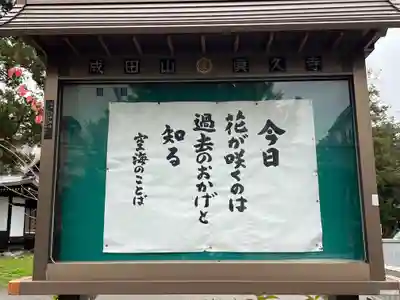 成田山 真久寺
今日
花が咲くのは
過去のおかげと
知る
空海のことば